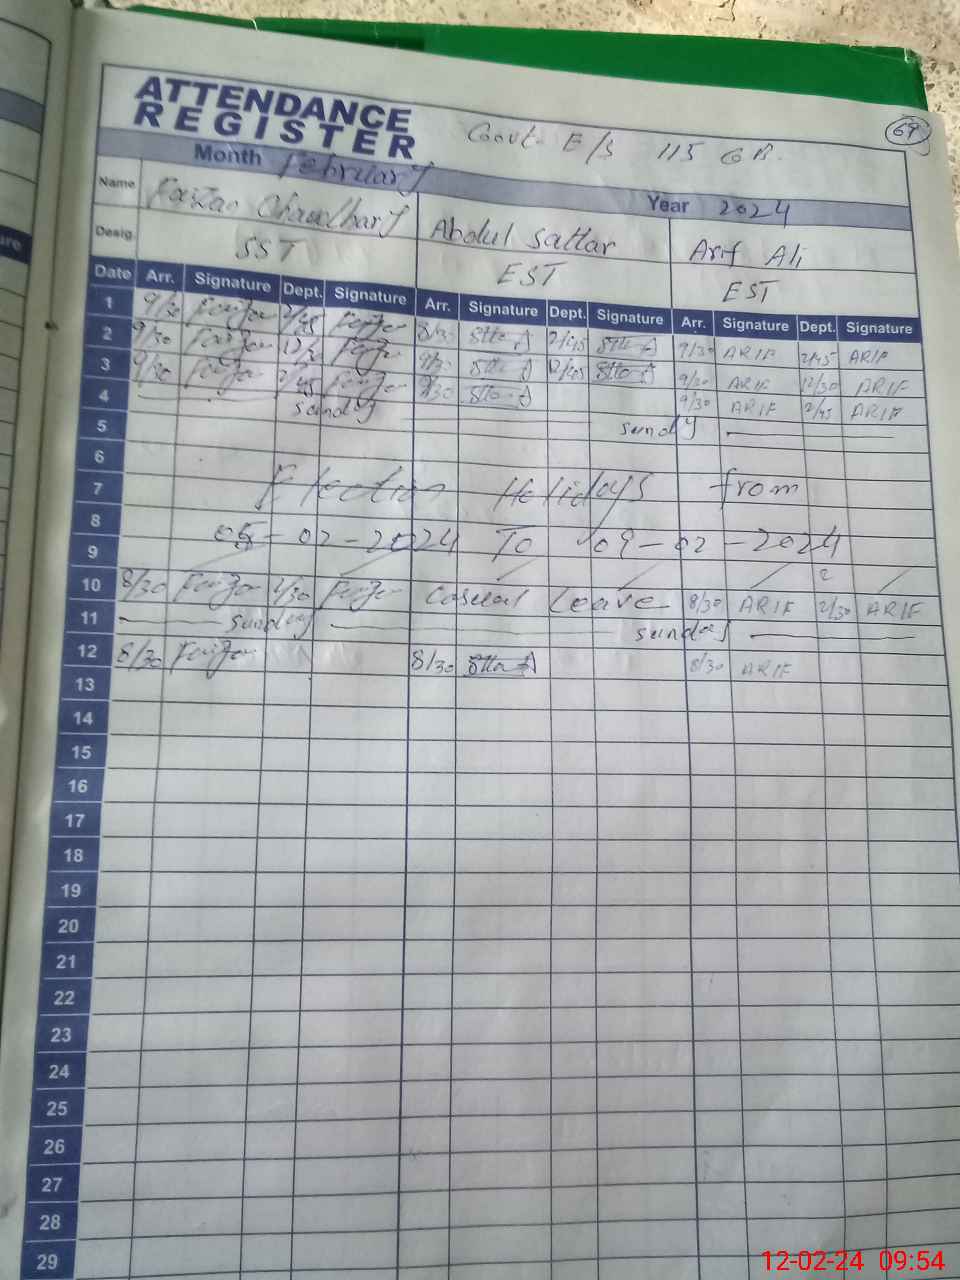 ATTENDANCE
REGISTER
Govt. E/S 115 GB.
69
Month February
Year 2024
Name Faizan Chaudhary Abdul Sattar Arif Ali
Desig. SST EST EST
Date Arr. Signature Dept. Signature Arr. Signature Dept. Signature Arr. Signature Dept. Signature
1 9/30 Faizan 2/45 Faizan 8/30 2/45 9/30 ARIF 2/45 ARIF
2 9/30 Faizan 12/30 Faizan 9/30 12/45 9/30 ARIF 12/30 ARIF
3 9/30 Faizan 2/45 Faizan 9/30 9/30 ARIF 2/45 ARIF
4 sunday sundy
5
6
7 Election Holidays from
8
9 05-02-2024 To 09-02-2024
10 8/30 Faizan 2/30 Faizan Casual Leave 8/30 ARIF 2/30 ARIF
11 sunday sunday
12 8/30 Faizan 8/30 8/30 ARIF
13
14
15
16
17
18
19
20
21
22
23
24
25
26
27
28
29
12-02-24 09:54